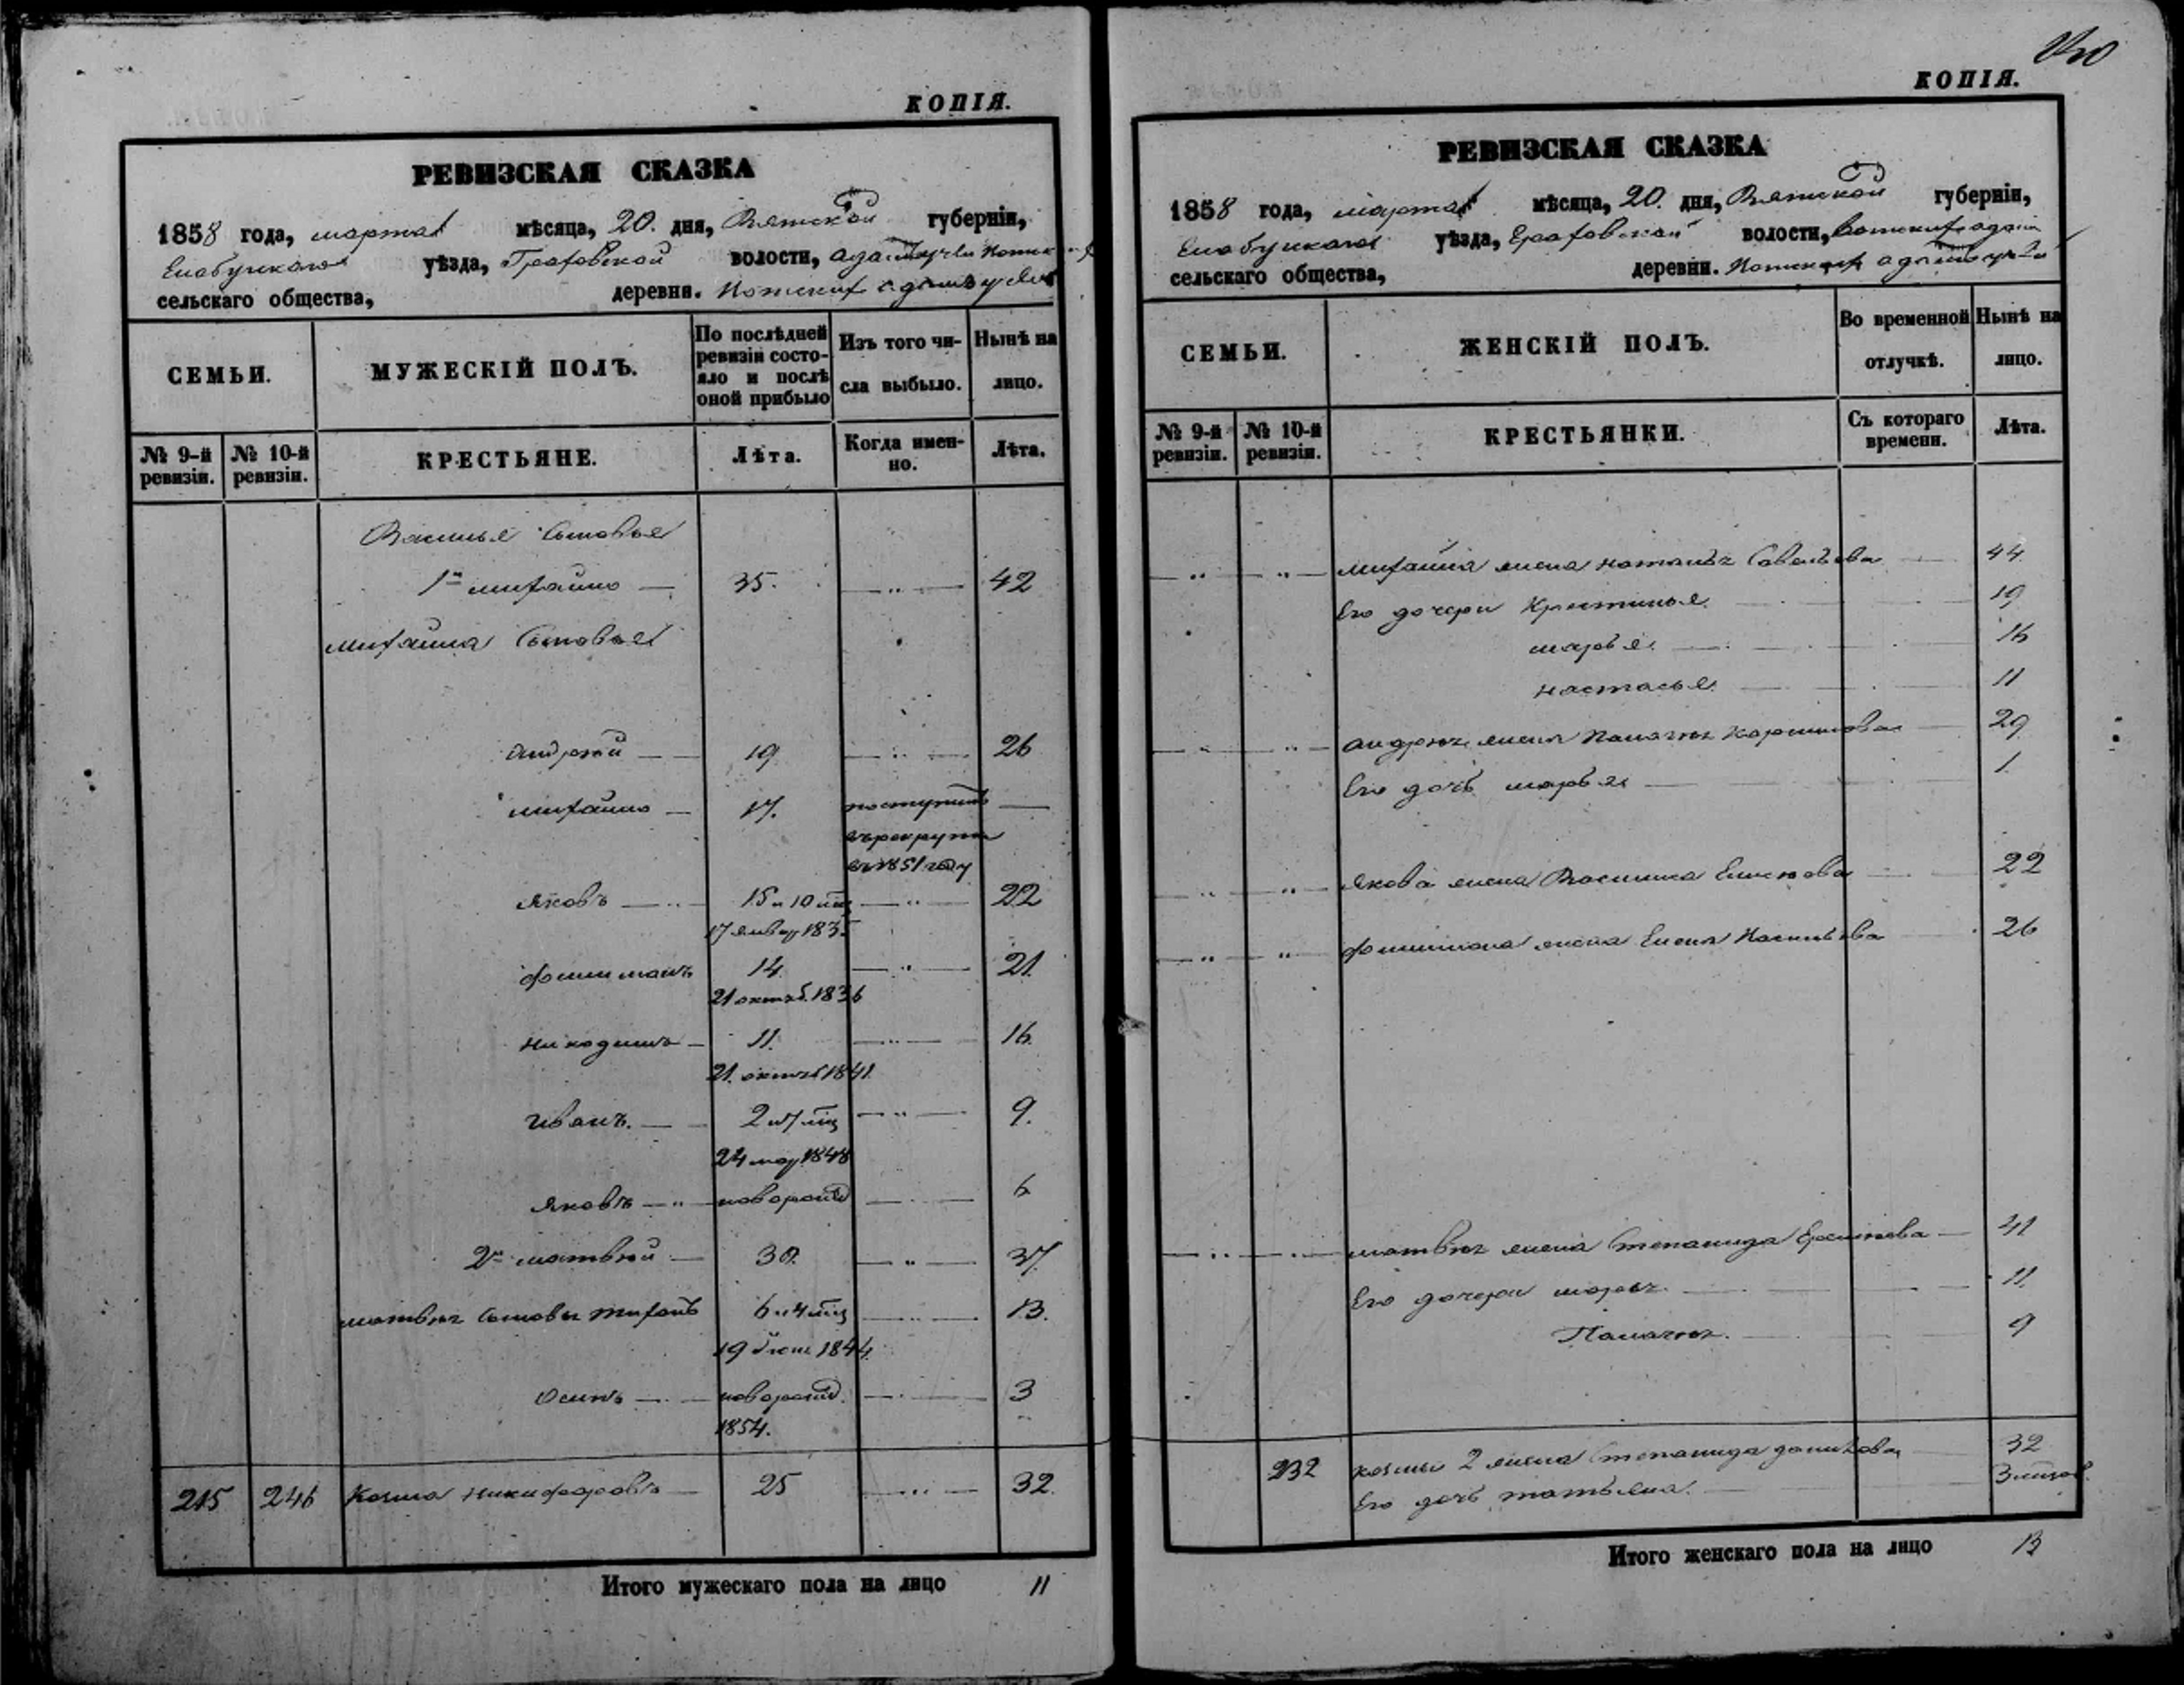 КОПІЯ.
РЕВИЗСКАЯ СКАЗКА
1858 года, марта мѣсяца, 20. дня, Вятской губерніи,
Елабужскаго уѣзда, Граховской волости,
сельскаго общества, деревни.
СЕМЬИ. МУЖЕСКІЙ ПОЛЪ. По послѣдней ревизіи состояло и послѣ оной прибыло Изъ того числа выбыло. Нынѣ на лицо.
№ 9-й ревизіи. № 10-й ревизіи. КРЕСТЬЯНЕ. Лѣта. Когда именно. Лѣта.
Василья Сыновья
1й михайло 35. 42
михайла Сыновья
андрей 19 26
михайло 17. поступилъ
въ рекруты
въ 1851 году
яковъ 15 и 10 мц 22
17 январ 1835
филимонъ 14 21.
21 октяб. 1836
никодимъ 11. 16
21. октяб 1841.
иванъ. 2 и 7 мц 9.
24 1848
яковъ новорожд 6
2й матвѣй 30. 37
матвѣя Сыновья тихонъ 6 и 4 мц 13.
19 1844.
осипъ новорожд. 3
1854.
215 246 Козма никифоровъ 25 32.
Итого мужескаго пола на лицо 11
КОПІЯ.
РЕВИЗСКАЯ СКАЗКА
1858 года, марта мѣсяца, 20. дня, Вятской губерніи,
Елабужскаго уѣзда, Граховской волости,
сельскаго общества, деревни.
СЕМЬИ. ЖЕНСКІЙ ПОЛЪ. Во временной отлучкѣ. Нынѣ на лицо.
№ 9-й ревизіи. № 10-й ревизіи. КРЕСТЬЯНКИ. Съ котораго времени. Лѣта.
михайла жена наталья Савельева 44.
Его дочери Крестинья. 19
марья. 16
настасья. 11
андрея жена Палагея 29
Его дочь марья 1.
якова жена Василиса 22
филимона жена Елена 26
матвѣя жена Степанида 41
Его дочери марья. 11.
Палагея. 9
232 козмы 2 жена Степанида данилова 32
Его дочь татьяна.
Итого женскаго пола на лицо 13